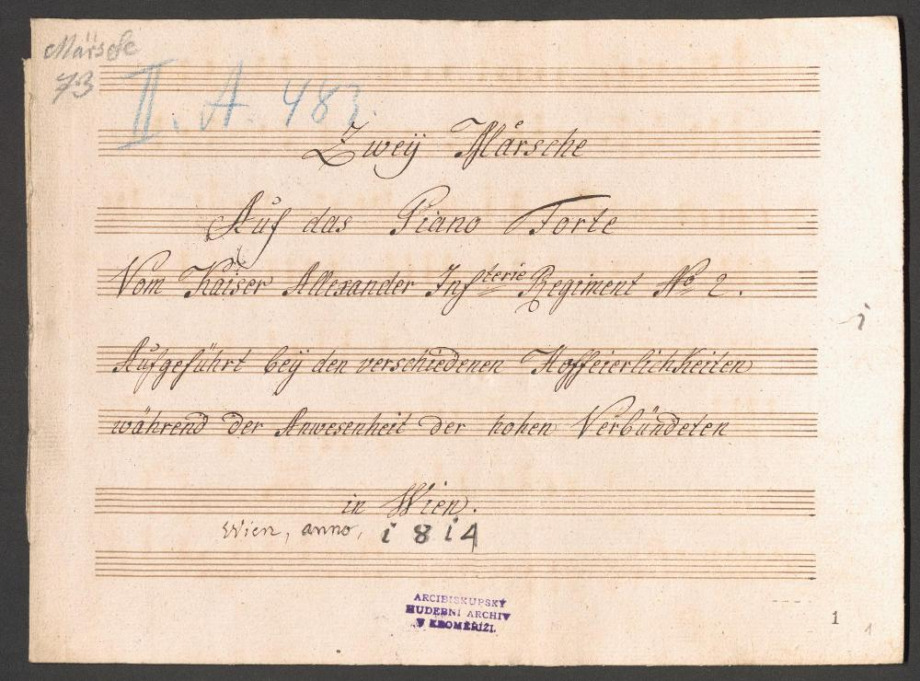 Märsche
73
II. A. 483.
Zweÿ Märsche
Auf das Piano Forte
Vom Kaiser Allexander Infterie Regiment No 2.
Aufgeführt beÿ den verschiedenen Hoffeierlichkeiten
während der Anwesenheit der hohen Verbündeten
in Wien.
Wien, anno, i8i4
i
ARCIBISKUPSKÝ
HUDEBNÍ ARCHIV
V KROMĚŘÍŽI.
1
1